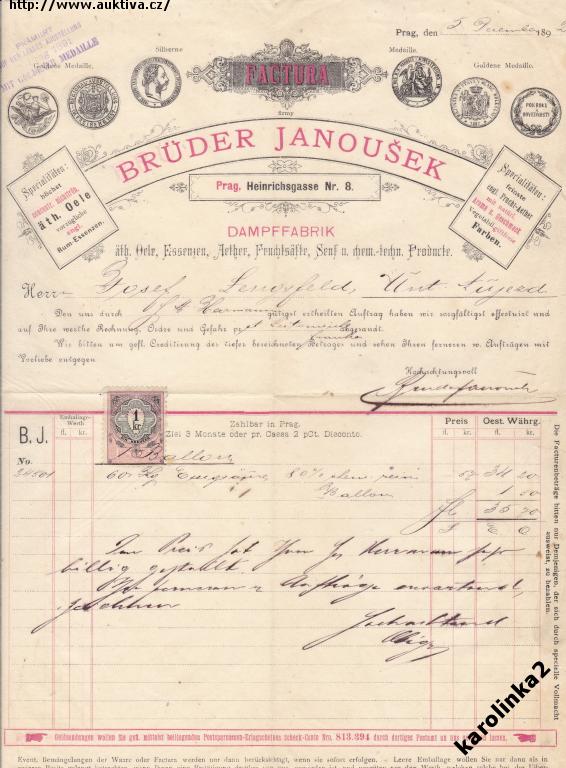 http://www.auktiva.cz/
Prag, den 5 Dezember 1892
PRÄMIIRT
MIT GOLDENER MEDAILLE
Goldene Medaille.
Silberne
Medaille.
Goldene Medaille.
FACTURA
firmy
POKROKU A NOVEJŠIM
BRÜDER JANOUŠEK
Prag, Heinrichsgasse Nr. 8.
Specialitäten:
höchst
concentr. Kichtrfr.
äth. Oele
vorzügliche
engl.
Rum-Essenzen.
Specialitäten:
feinste
engl. Frucht-Aether
mit natürl.
Aroma u. Geschmack
Vegetabil. giftlose
Farben.
DAMPFFABRIK
äth. Oele, Essenzen, Aether, Fruchtsäfte, Senf u. chem.-techn. Producte.
Herrn Josef Lengsfeld, Unt. Aujezd
Den uns durch H. Hermann gütigst ertheilten Auftrag haben wir sorgfältigst effectuirt und
auf Ihre werthe Rechnung, Ordre und Gefahr pr abgesandt.
franko
Wir bitten um gefl. Creditirung des tiefer bezeichneten Betrages und sehen Ihren ferneren w. Aufträgen mit
Vorliebe entgegen
Hochachtungsvoll
Brüder Janoušek
B. J.
No.
Emballage-
Werth
fl. kr.
1 kr.
Zahlbar in Prag.
Ziel 3 Monate oder pr. Cassa 2 pCt. Disconto.
Preis
fl. kr.
Oest. Währg.
fl. kr.
1 Ballon
60 Kg Essigsäure 80% chem. rein 57 34 20
Ballon 1 50
fl 35 70
Der Preis ist Herrn Hermann sehr
billig gestellt.
Ihre ferneren w Aufträge erwartend,
zeichnen
hochachtend
Obige
Die Facturenbeträge bitten nur Demjenigen, der sich durch specielle Vollmacht
ausweist, zu bezahlen.
Geldsendungen wollen Sie gefl. mittelst beiliegenden Postsparcassen-Erlagscheines scheck-Conto Nro. 813.394 durch dortiges Postamt an uns lassen.
Event. Bemängelungen der Waare oder Factura werden nur dann berücksichtigt, wenn sie sofort erfolgen. — Leere Emballage wollen Sie deutlich als
karolinka2